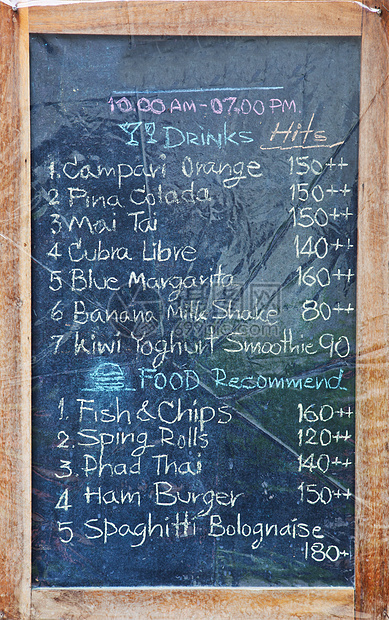 10.00 AM-07.00 PM.
Drinks Hits
1. Campari Orange 150++
2 Pina Colada 150++
3 Mai Tai 150++
4 Cubra Libre 140++
5 Blue Margarita 160++
6 Banana Milk Shake 80++
7 Kiwi Yoghurt Smoothie 90
FOOD Recommend
1. Fish & Chips 160++
2. Sping Rolls 120++
3. Phad Thai 140++
4 Ham Burger 150++
5 Spaghitti Bolognaise
180+